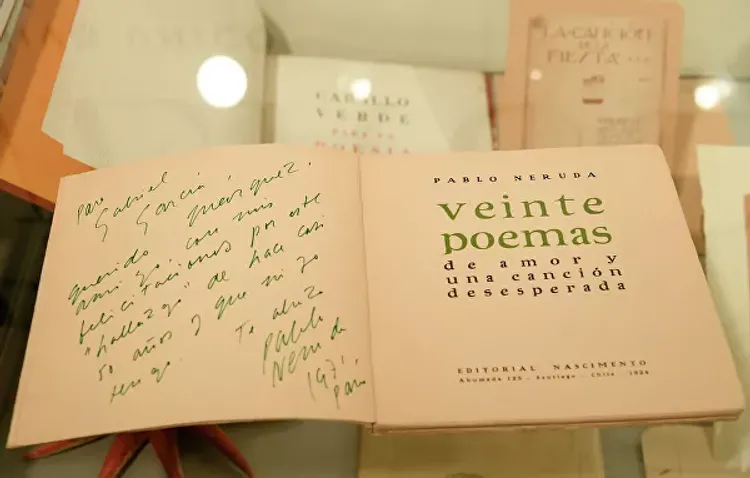 LA CANCIÓN
DE LA
FIESTA
CABALLO
VERDE
PARA LA
POESIA
Para
Gabriel
García Márquez,
querido
amigo, con mis
felicitaciones por este
"hallazgo" de hace casi
50 años y que ni yo
tengo. Te abraza
Pablo
Neruda
1971,
París
PABLO NERUDA
veinte
poemas
de amor y
una canción
desesperada
EDITORIAL NASCIMENTO
Ahumada 125 - Santiago - Chile 1924